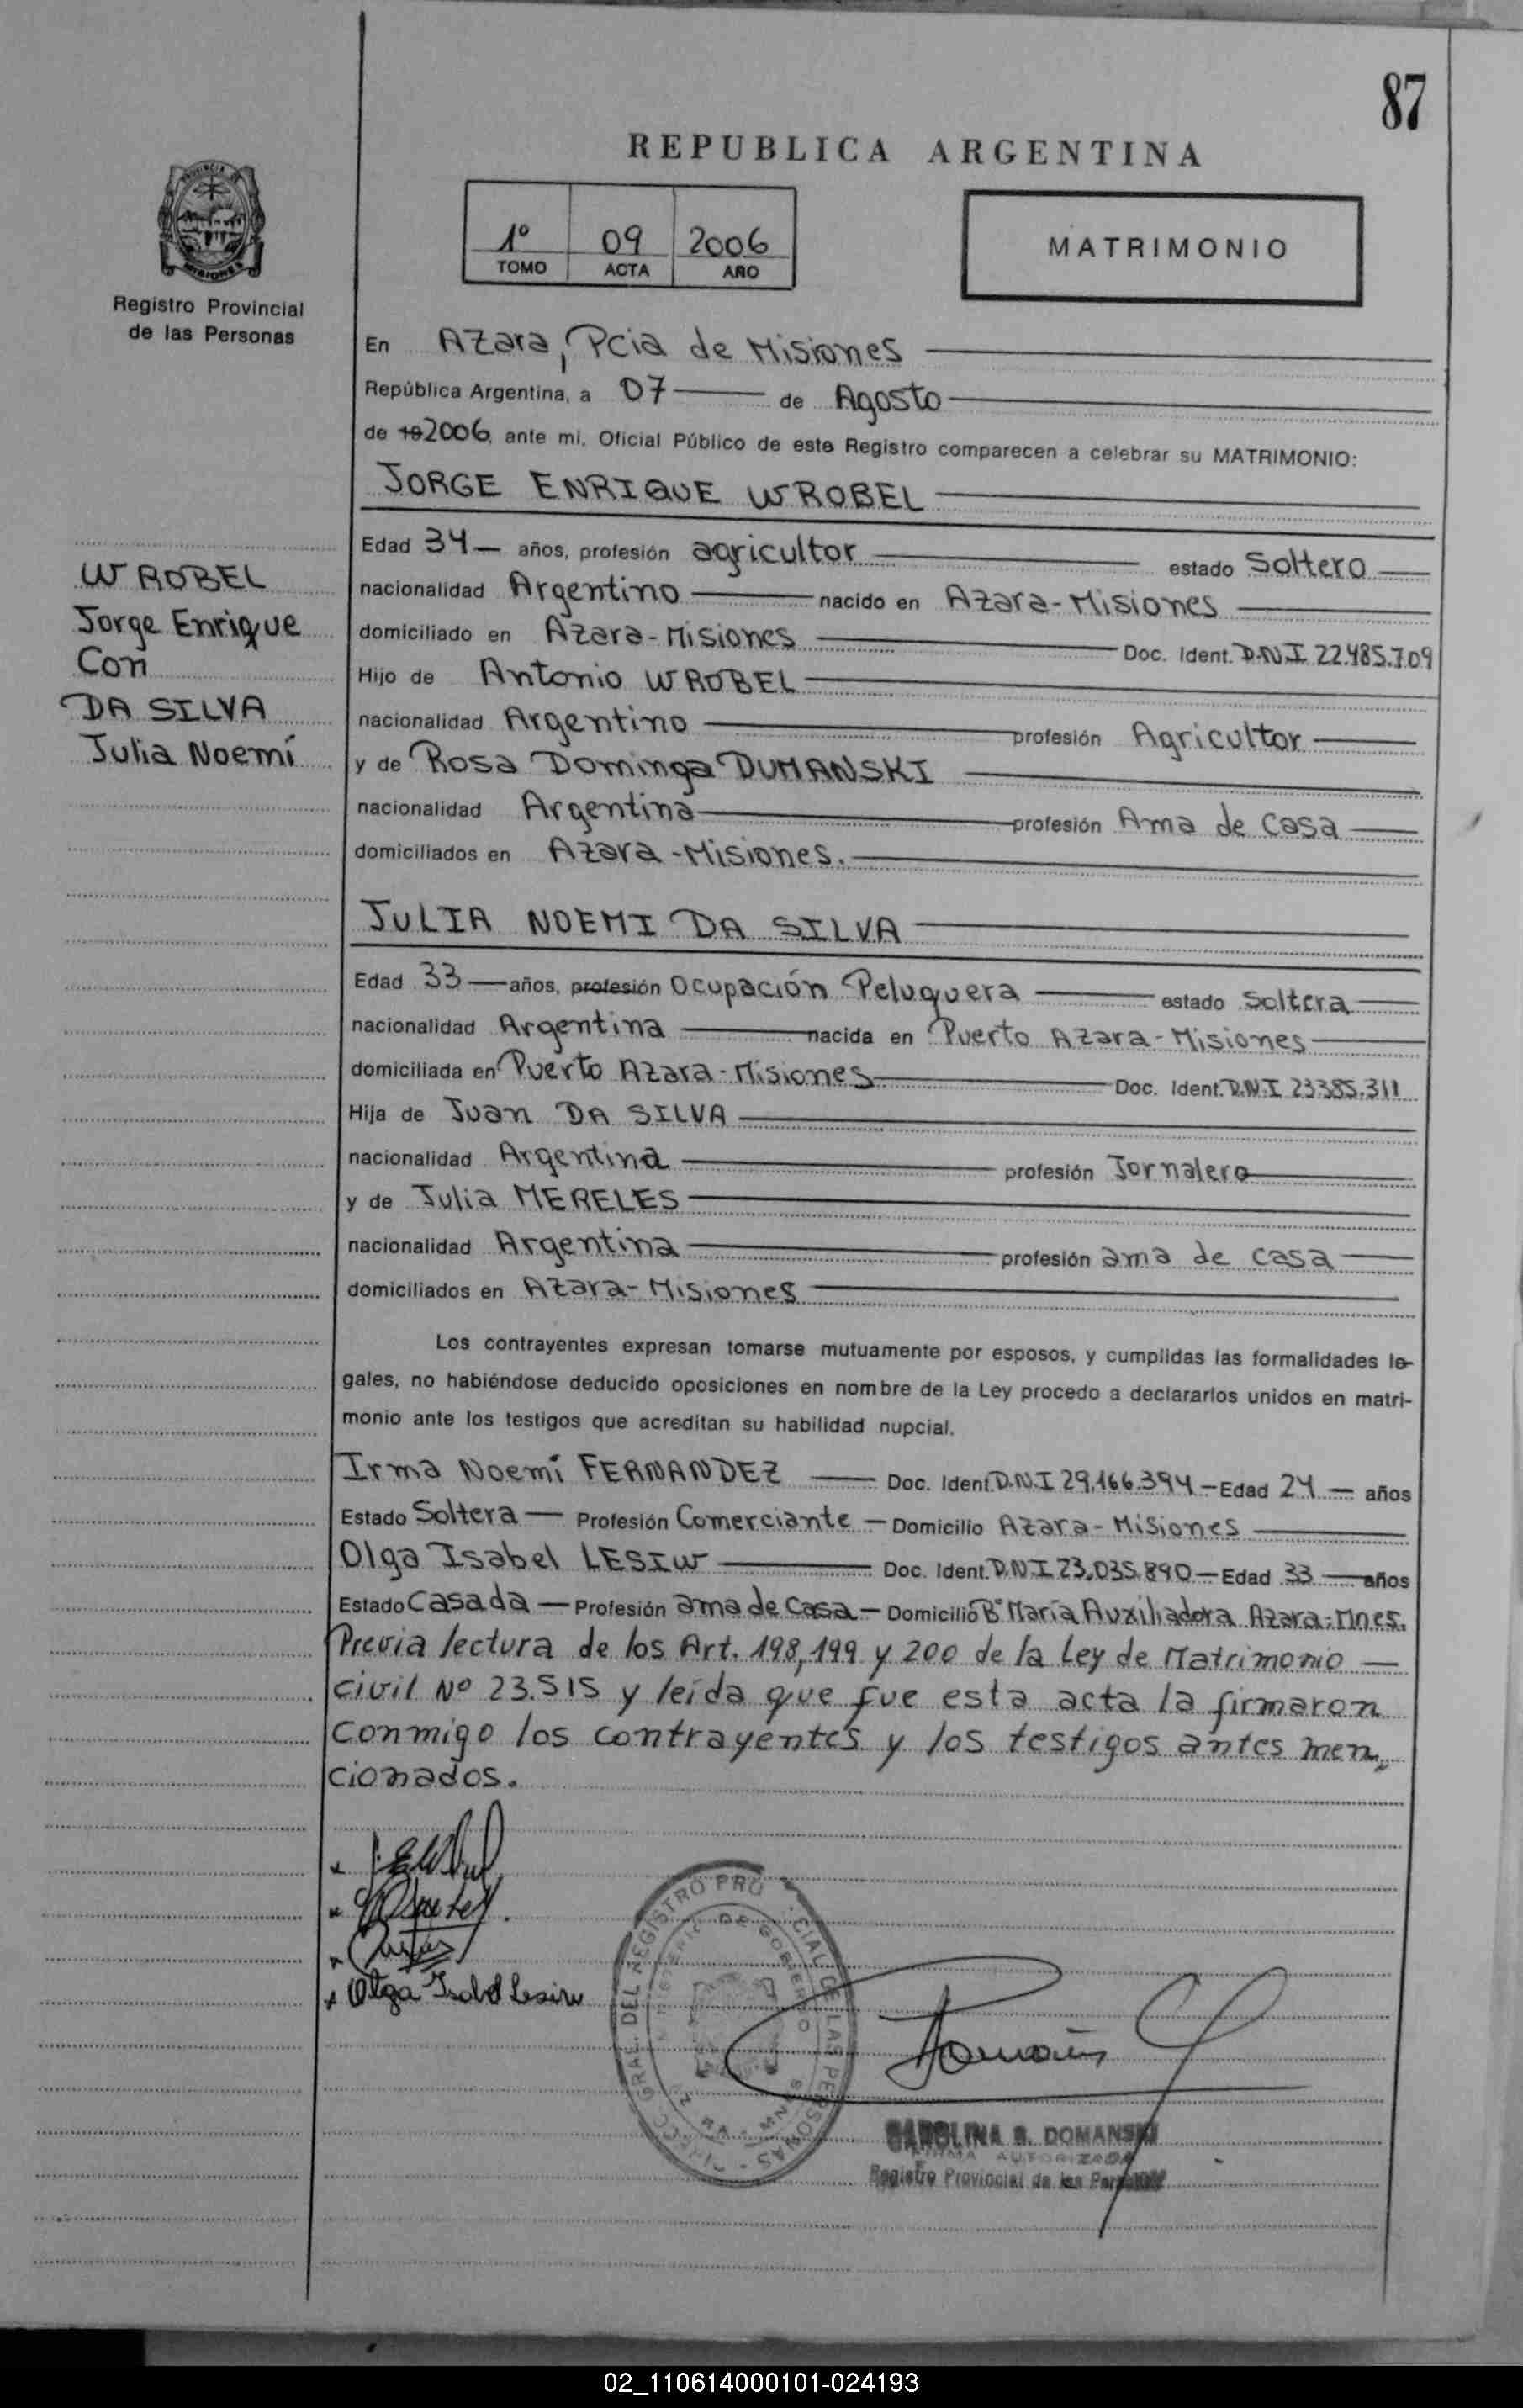 87
REPUBLICA ARGENTINA
1º 09 2006
TOMO ACTA AÑO
MATRIMONIO
Registro Provincial
de las Personas
En Azara, Pcia de Misiones
República Argentina, a 07 de Agosto
de 19 2006, ante mi, Oficial Público de este Registro comparecen a celebrar su MATRIMONIO:
JORGE ENRIQUE WROBEL
Edad 34 años, profesión agricultor estado Soltero
nacionalidad Argentino nacido en Azara-Misiones
domiciliado en Azara-Misiones Doc. Ident. D.N.I 22.485.709
Hijo de Antonio WROBEL
nacionalidad Argentino profesión Agricultor
y de Rosa Dominga DUMANSKI
nacionalidad Argentina profesión Ama de casa
domiciliados en Azara-Misiones.
WROBEL
Jorge Enrique
Con
DA SILVA
Julia Noemí
JULIA NOEMI DA SILVA
Edad 33 años, profesión Ocupación Peluquera estado Soltera
nacionalidad Argentina nacida en Puerto Azara-Misiones
domiciliada en Puerto Azara-Misiones Doc. Ident. D.N.I 23.385.311
Hija de Juan DA SILVA
nacionalidad Argentina profesión Jornalero
y de Julia MERELES
nacionalidad Argentina profesión ama de casa
domiciliados en Azara-Misiones
Los contrayentes expresan tomarse mutuamente por esposos, y cumplidas las formalidades le-
gales, no habiéndose deducido oposiciones en nombre de la Ley procedo a declararlos unidos en matri-
monio ante los testigos que acreditan su habilidad nupcial.
Irma Noemí FERNANDEZ Doc. Ident. D.N.I 29.166.394 - Edad 24 años
Estado Soltera Profesión Comerciante - Domicilio Azara-Misiones
Olga Isabel LESIW Doc. Ident. D.N.I 23.035.890 - Edad 33 años
Estado Casada - Profesión ama de casa - Domicilio Bº María Auxiliadora Azara-Mnes.
Previa lectura de los Art. 198, 199 y 200 de la Ley de Matrimonio
civil Nº 23.515 y leída que fue esta acta la firmaron
conmigo los contrayentes y los testigos antes men
cionados.
Olga Isabel Lesiw
GRAL. DEL REGISTRO PRO CIAL DE LAS PERSONAS
DE GOBIERNO
CAROLINA B. DOMANSKI
FIRMA AUTORIZADA
Registro Provincial de las Personas
02_110614000101-024193